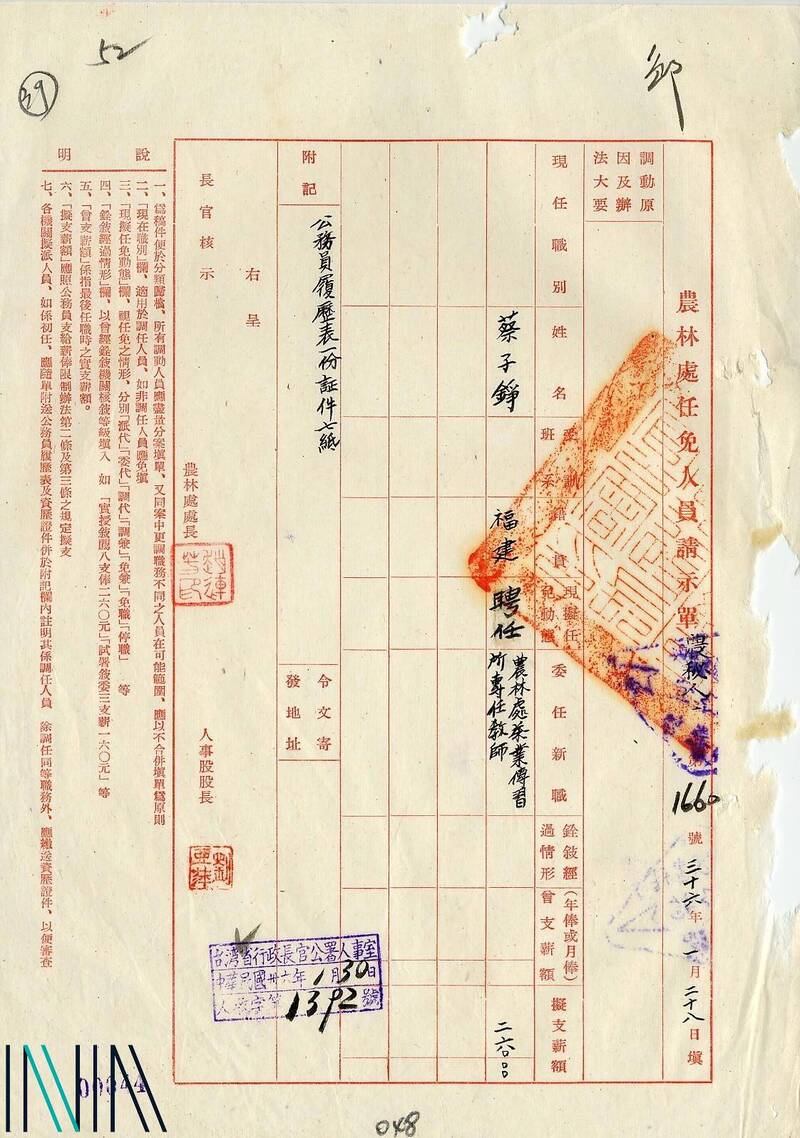 52
39
邱
農林處任免人員請示單
農秘人
1660號 三十六年一月二十八日填
調動原因及辦法大要
現任職別
姓名
受訓班系
籍貫
現擬任免動態
委任新職
銓敘經過情形
(年俸或月俸)曾支薪額
擬支薪額
蔡子錚
福建
聘任
農林處茶業傳習所專任教師
二六〇.〇〇
附記
公務員履歷表一份証件七紙
令文寄發地址
右呈
長官核示
農林處處長
趙連芳印
人事股股長
台灣省行政長官公署人事室
中華民國卅六年1月30日
人 字第1392號
說明
一、為稿件便於分類歸檔、所有調動人員應盡量分案填單、又同案中更調職務不同之人員在可能範圍、應以不合併填單為原則
二、「現在職別」欄、適用於調任人員、如非調任人員應免填
三、「現擬任免動態」欄、視任免之情形、分別「派代」「委代」「調代」「調兼」「免兼」「免職」「停職」等
四、「銓敘經過情形」欄、以曾經銓敘機關核敘等級填入 如「實授敘薦八支俸二六〇元」「試署敘委三支薪一六〇元」等
五、「曾支薪額」係指最後任職時之實支薪額。
六、「擬支薪額」應照公務員支給薪俸限制辦法第二條及第三條之規定擬支
七、各機關擬派人員、如係初任、應隨單附送公務員履歷表及資歷證件併於附記欄內註明其係調任人員 除調任同等職務外、應繳送資歷證件、以便審查
00844
048